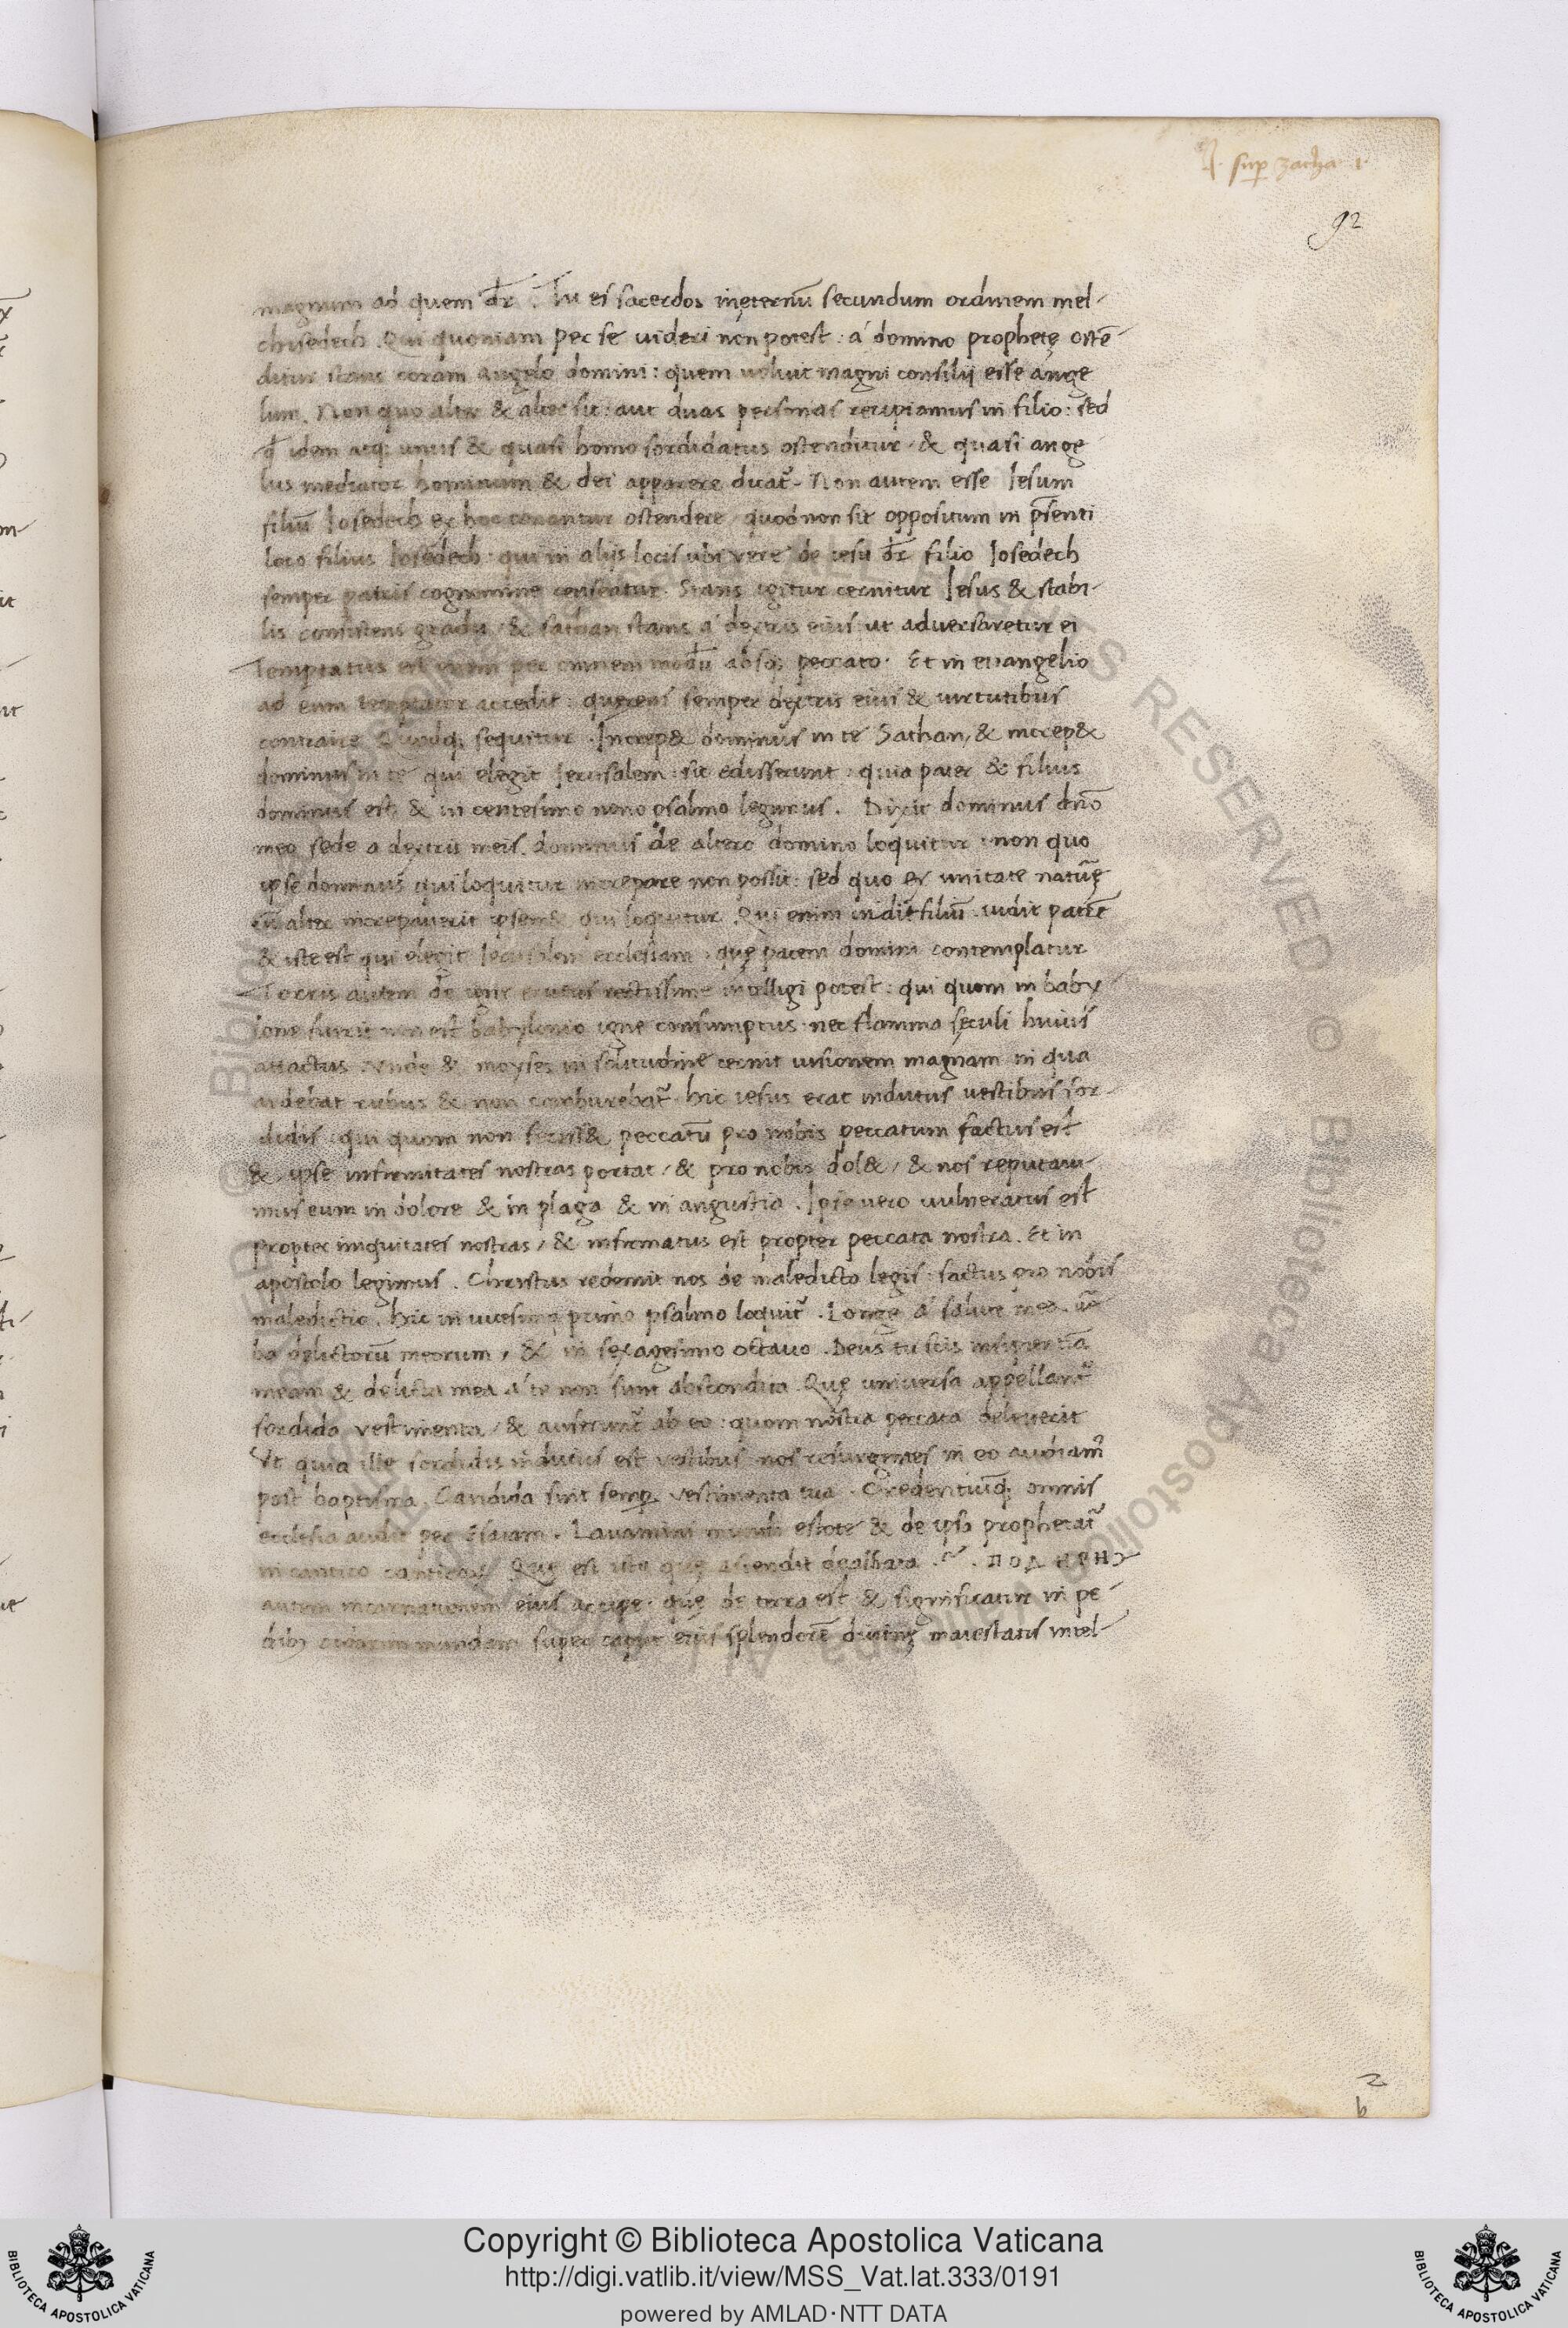 sup̱ zacha 1.
92
magnum ad quem dr̄. Tu es sacerdos inęternū secundum ordinem mel-
chisedech. Qui quoniam per se uideri non potest: á domino prophetę ostē-
ditur stans coram angelo domini: quem uolunt magni consilij esse ange
lum. Non quo alter & alter sit: aut duas personas recipiamus in filio: sed
qđ idem atq; unus & quasi homo sordidatus ostenditur & quasi ange
lus mediator hominum & dei apparere dicat᷑. Non autem esse Iesum
filiū Iosedech ex hoc conantur ostendere quod non sit oppositum in p̄senti
loco filius Iosedech: qui in alijs locis ubi vere de iesu dr̄ filio Iosedech
semper patris cognomine censeatur. Stans igitur cernitur Iesus & stabi-
lis consistens gradu, & sathan stans á dextris eius ut adversaretur ei
Temptatus est enim per omnem modū absq; peccato. Et in evangelio
ad eum temptator accedit: quęrens semper dextris eius & uirtutibus
contraire. Quodq; sequitur. Increp& dominus in te Sathan, & increp&
dominus in te qui elegit Ierusalem: sic edisserunt: quia pater & filius
dominus est, & in centesimo nono psalmo legimus. Dixit dominus dn̄o
meo sede a dextris meis. dominus de altero domino loquitur: non quo
ipse dominus qui loquitur increpare non possit: sed quo ex unitate natur̄ę
cū alter increpauerit ipse incre& qui loquitur. Qui enim uidit filiū. uidit patrē
& iste est qui elegit Ierusalem ecclesiam: quę pacem domini contemplatur
Torris autem de igne erutus rectissime intelligi potest: qui quom in baby
lone fuerit non est babylonio igne consumptus: nec flamma sęculi huius
attactus. Vnde & moyses in solitudine cernit uisionem magnam in qua
ardebat rubus & non comburebat᷑. hic iesus erat indutus vestibus sor-
didis: qui quom non feciss& peccatū pro nobis peccatum factus est
& ipse infirmitates nostras portat, & pro nobis dol&, & nos reputaui-
mus eum in dolore & in plaga & in angustia. Ipse vero uulneratus est
propter iniquitates nostras, & infirmatus est propter peccata nostra. Et in
apostolo legimus. Christus redemit nos de maledicto legis: factus pro nobis
maledictio. hic in uicesimo primo psalmo loquit᷑. Longe á salute mea. uer̄
ba delictorū meorum, & in sexagesimo octauo. Deus tu scis insipientiā
meam & delicta mea á te non sunt abscondita. Quę universa appellant᷑
sordida vestimenta, & auferunt᷑ ab eo: quom nostra peccata deleuerit
Vt quia ille sordidis indutus est vestibus: nos resurgentes in eo audiam᷒
post baptisma. Candida sint semp̱ vestimenta tua. Credentiūq; omnis
ecclesia audit per Esaiam. Lauamini mundi estote & de ipsa prophetat᷑
in cantico canticoꝝ. Quę est ista quę ascendit dealbata. ΠΟΔΗΡΗ
autem incarnationem eius accipe: quę de terra est & significatur in pe-
dib; cidarim mundam super caput eius splendorē diuinę maiestatis intel-
b
Copyright © Biblioteca Apostolica Vaticana
http://digi.vatlib.it/view/MSS_Vat.lat.333/0191
powered by AMLAD·NTT DATA
BIBLIOTECA APOSTOLICA VATICANA
BIBLIOTECA APOSTOLICA VATICANA